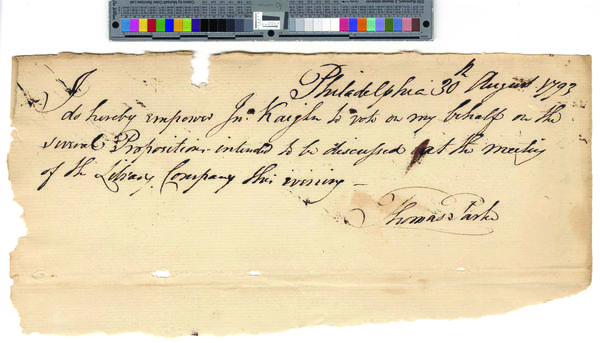 Philadelphia 30th August 1793
I do hereby empower Jno. Kaighn to vote on my behalf on the
several Propositions intended to be discussed at the meeting
of the Library Company this evening —
Thomas Parke